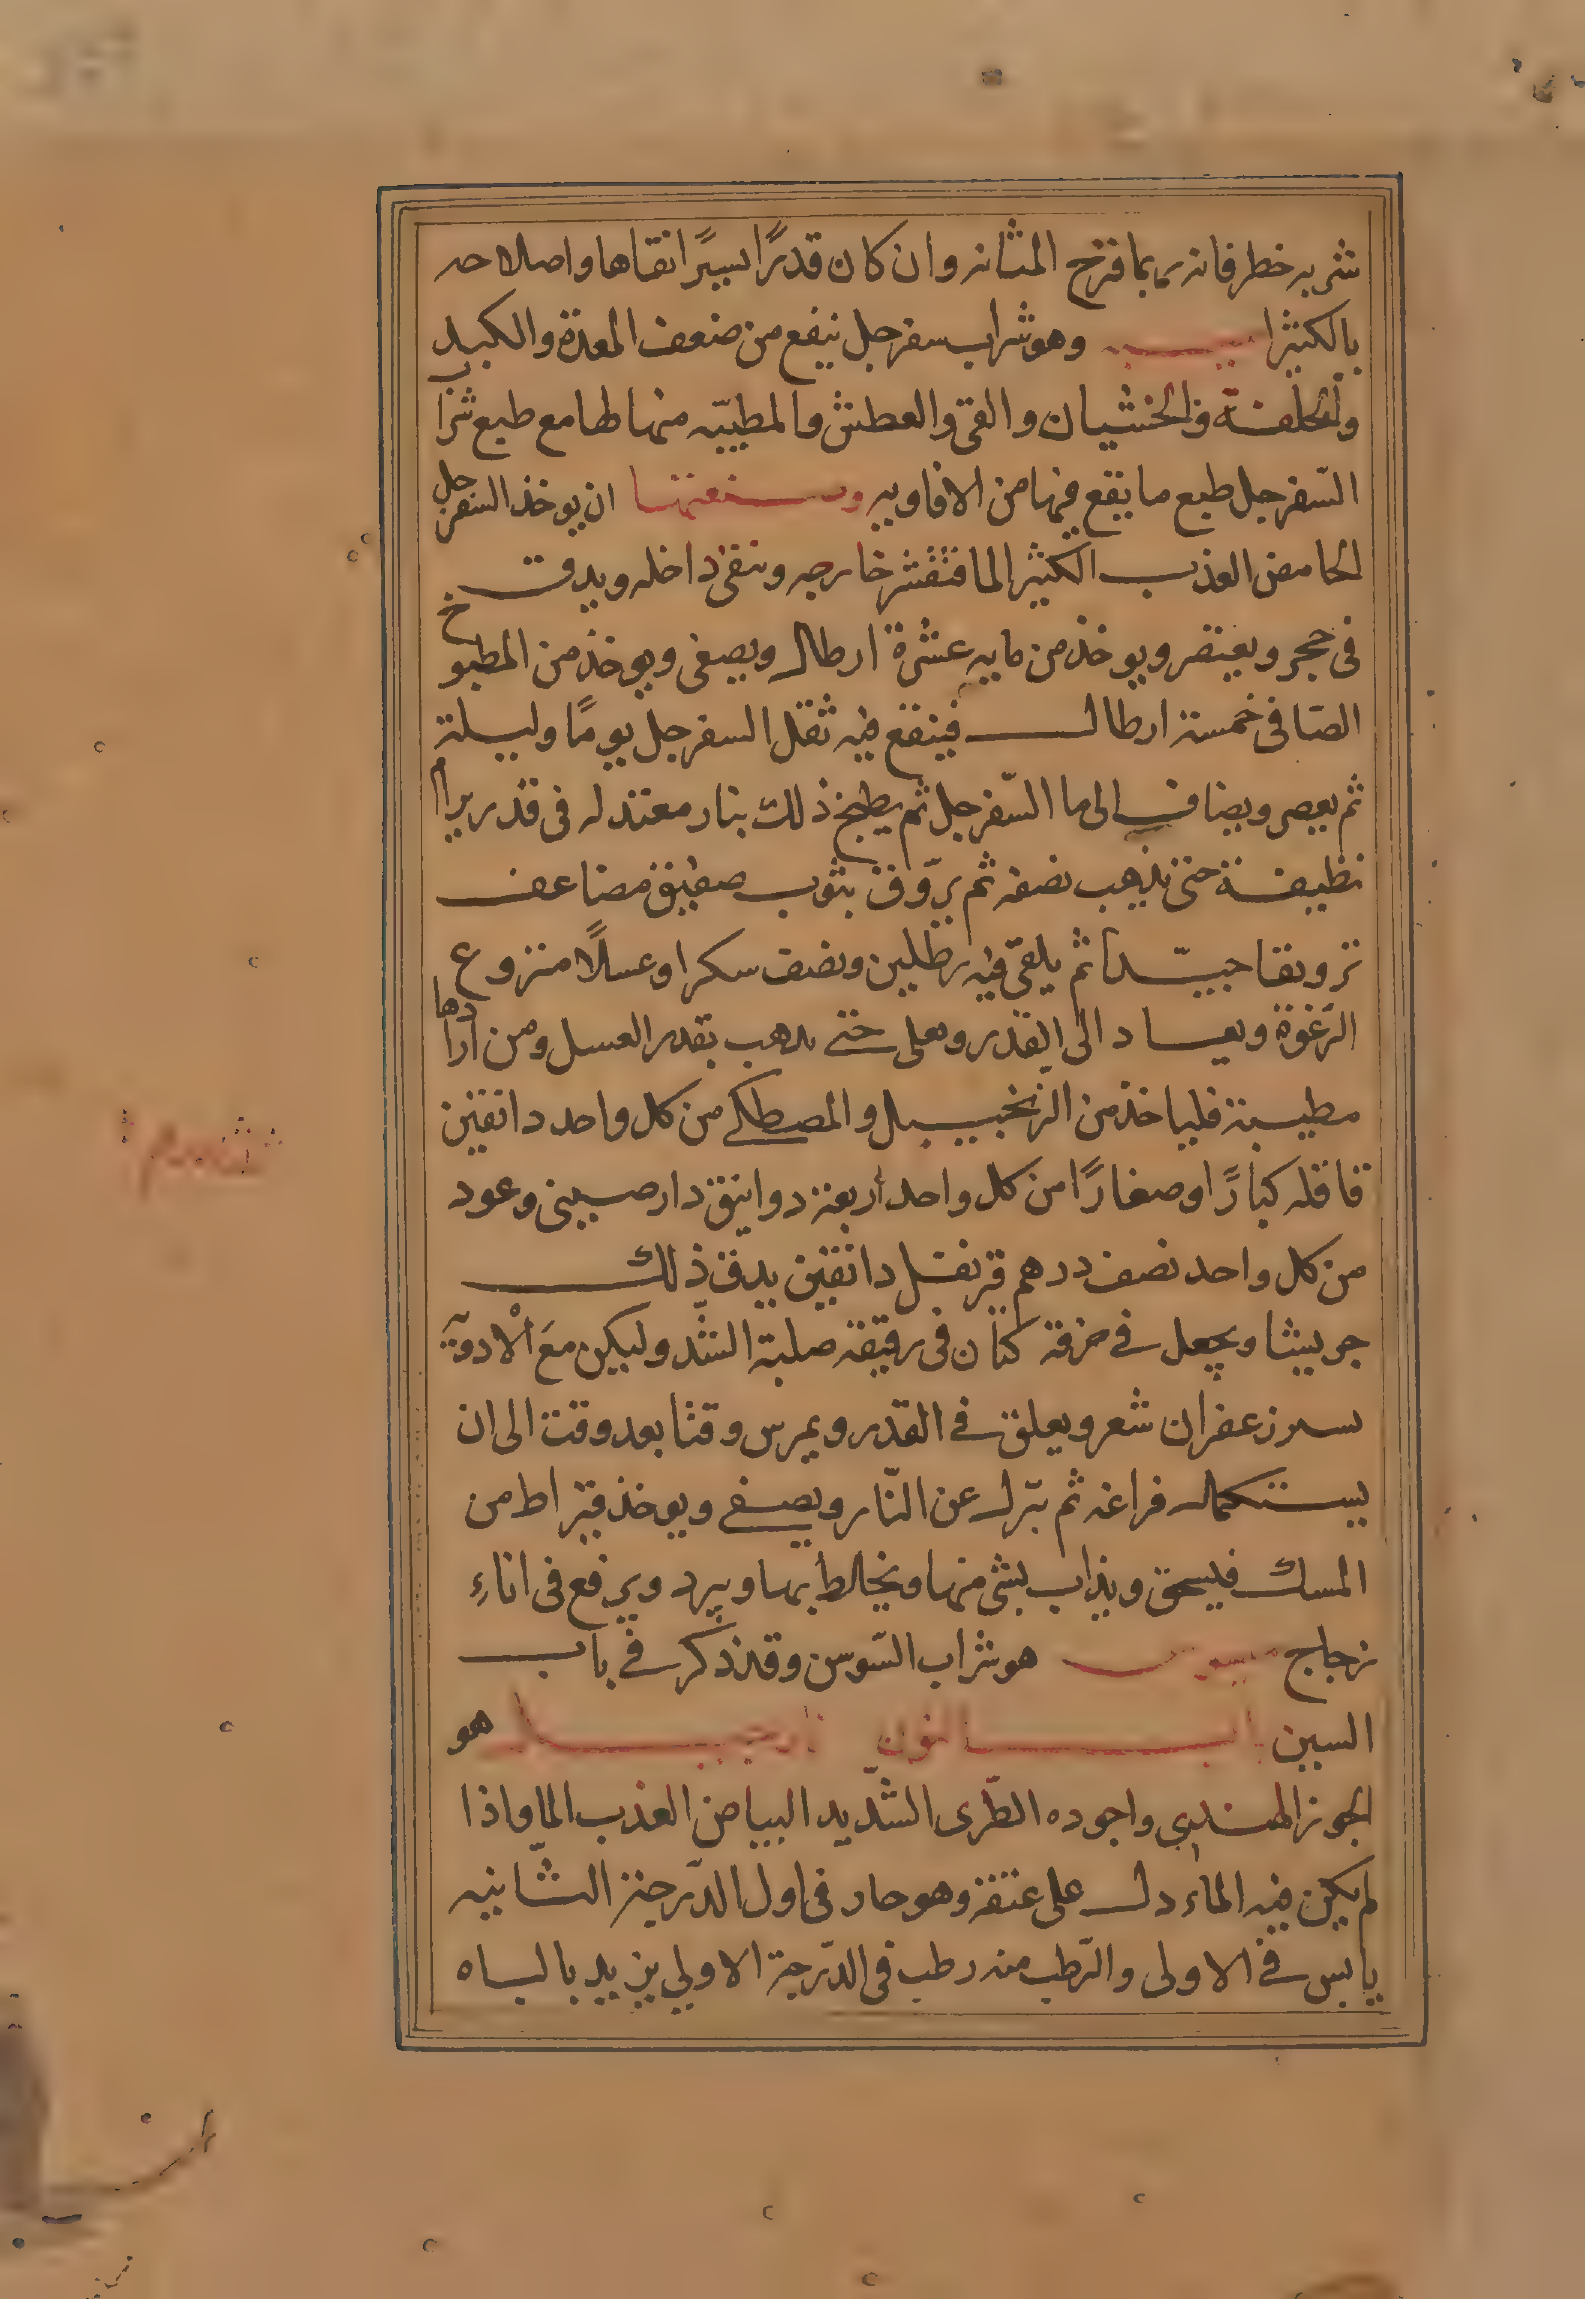 شربه خطر فانه ربما قرح المثانه وان كان قدرًا يسيرًا نقاها واصلاحه
بالكثيرا ميبه وهو شراب سفرجل ينفع من ضعف المعدة والكبد
والخلفة والغشيان والقى والعطش والمطيبه منها طامع طبع شراب
السفرجل طبع ما يقع فيها من الافاويه وصنعتها ان يوخذ السفرجل
الحامض العذب الكثير الما فتقشر خارجه وينقى داخله ويدق
فى حجر ويعتصر ويوخذ من مايه عشرة ارطال ويصفى ويوخذ من المطبوخ
الصافى خمسة ارطال فينقع فيه ثقل السفرجل يومًا وليلة
ثم يعصر ويضاف الى ما السفرجل ثم يطبخ ذلك بنار معتدله فى قدر برام
نظيفة حتى يذهب نصفه ثم يروق بثوب صفيق مضاعف
ترويقا جيدا ثم يلقى فيه رطلين ونصف سكرا وعسلًا منزوع
الرغوة ويعاد الى القدر ويعلى حتى يذهب بقدر العسل ومن ارادها
مطيبة فلياخذ من الزنجبيل والمصطكى من كل واحد دانقين
قاقله كبارًا وصغارًا من كل واحد أربعة دوانيق دارصينى وعود
من كل واحد نصف درهم قرنفل دانقين يدق ذلك
جريشا ويجعل فى خرقة كتان فى رقيقة صلبة الشد وليكن مع الادويه
يسير زعفران شعر ويعلق فى القدر ويمرس وقتا بعد وقت الى ان
يستكمال فراغه ثم ينزل عن النار ويصفى ويوخذ قيراط من
المسك فيسحق ويذاب بشى منها ويخالط بها ويبرد ويرفع فى اناءِ
زجاج ميسوس هو شراب السوسن وقد ذكر فى باب
السين باب النون نارجيل هو
الجوز الهندى واجوده الطرى الشديد البياض العذب الما واذا
لم يكن فيه الماء دل على عتقه وهو حار فى اول الدرجة الثانيه
يابس فى الاولى والرطب منه رطب فى الدرجة الاولى يزيد بالباه